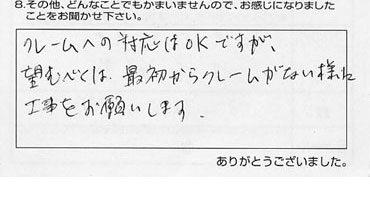 8.その他、どんなことでもかまいませんので、お感じになりました
ことをお聞かせ下さい。
クレームへの対応はOKですが、
望むべくは、最初からクレームがない様に
工事をお願いします。
ありがとうございました。